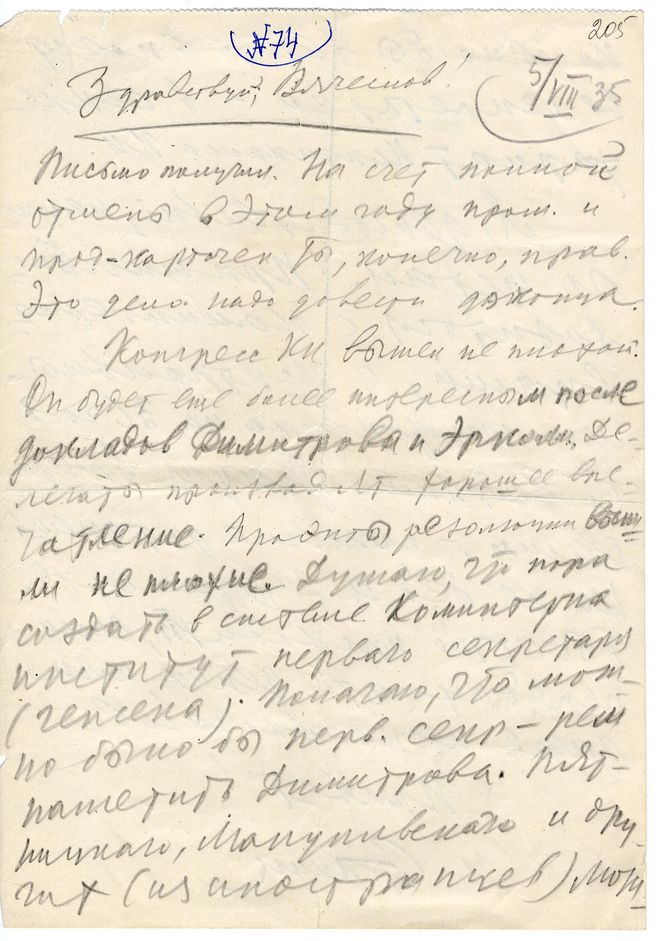 205
№74
Здравствуй, Вячеслав!
5/VIII 35
Письмо получил. На счет полной
отмены в этом году пром. и
прод-карточек ты, конечно, прав.
Это дело надо довести до конца.
Конгресс КИ вышел не плохой.
Он будет еще более интересным после
докладов Димитрова и Эрколи. Де-
легаты производят хорошее впе-
чатление. Проэкты резолюции выш-
ли не плохие. Думаю, что пора
создать в системе Коминтерна
институт первого секретаря
(генсека). Полагаю, что мож-
но было бы перв. секр-рем
наметить Димитрова. Пят-
ницкого, Мануильского и дру-
гих (из иностранцев) мож-